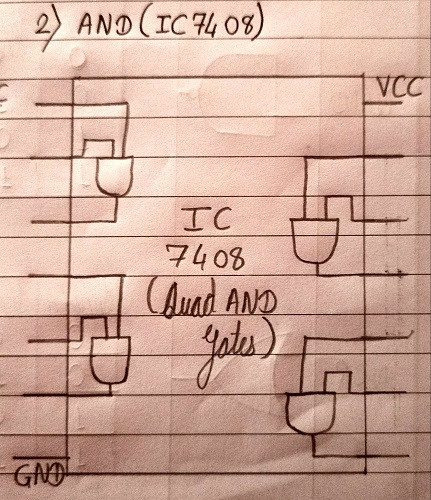 2) AND (IC 7408)
VCC
IC
7408
(Quad AND
Gates)
GND